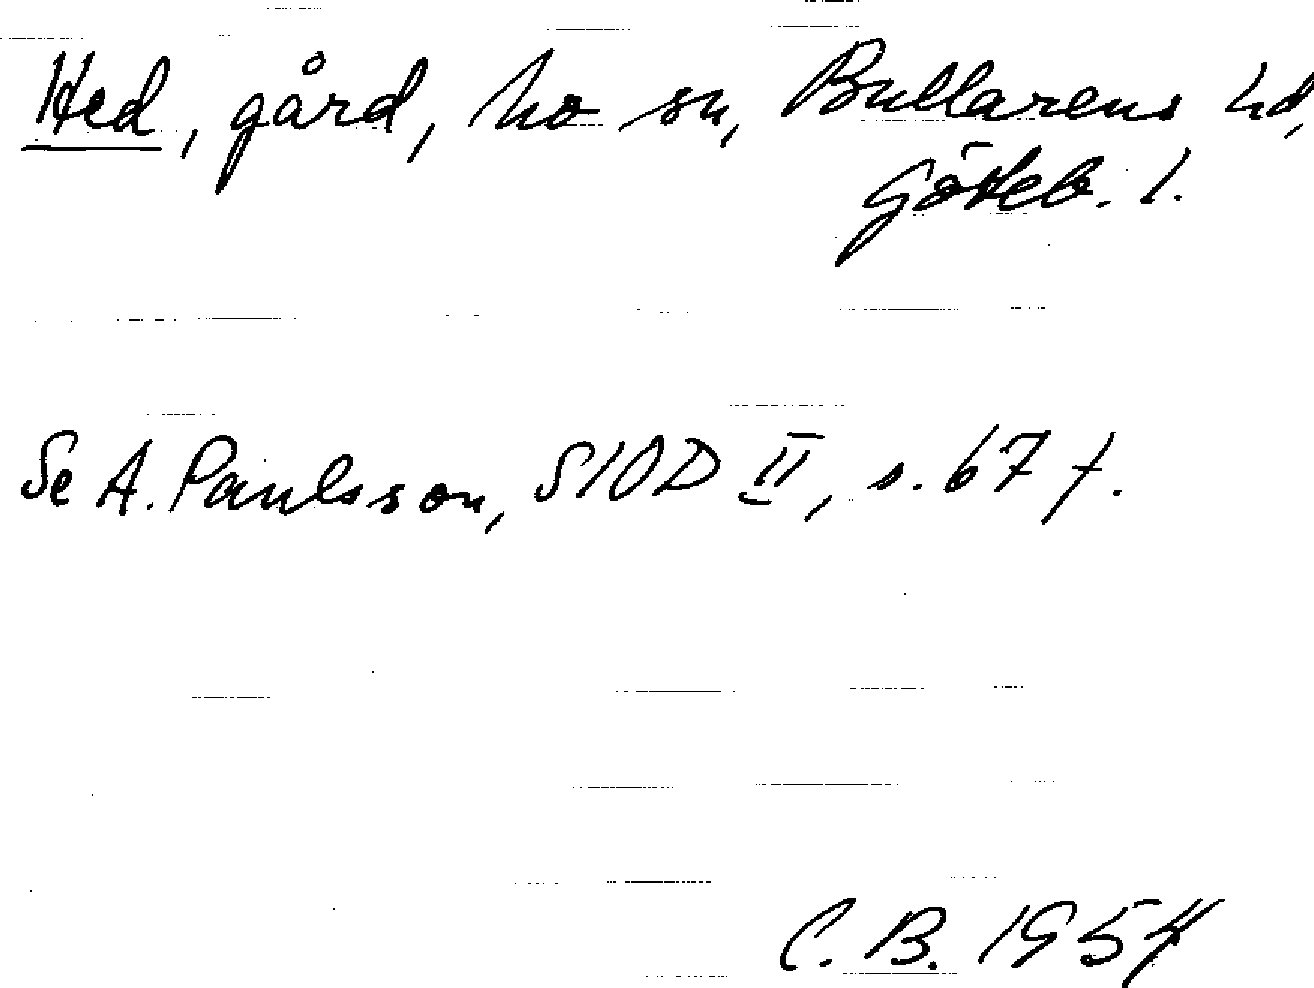 Hed, gård, Mo sn, Bullarens hd,
Göteb. l.
Se A. Paulsson, SIOD II, s. 67 f.
C. B. 1954